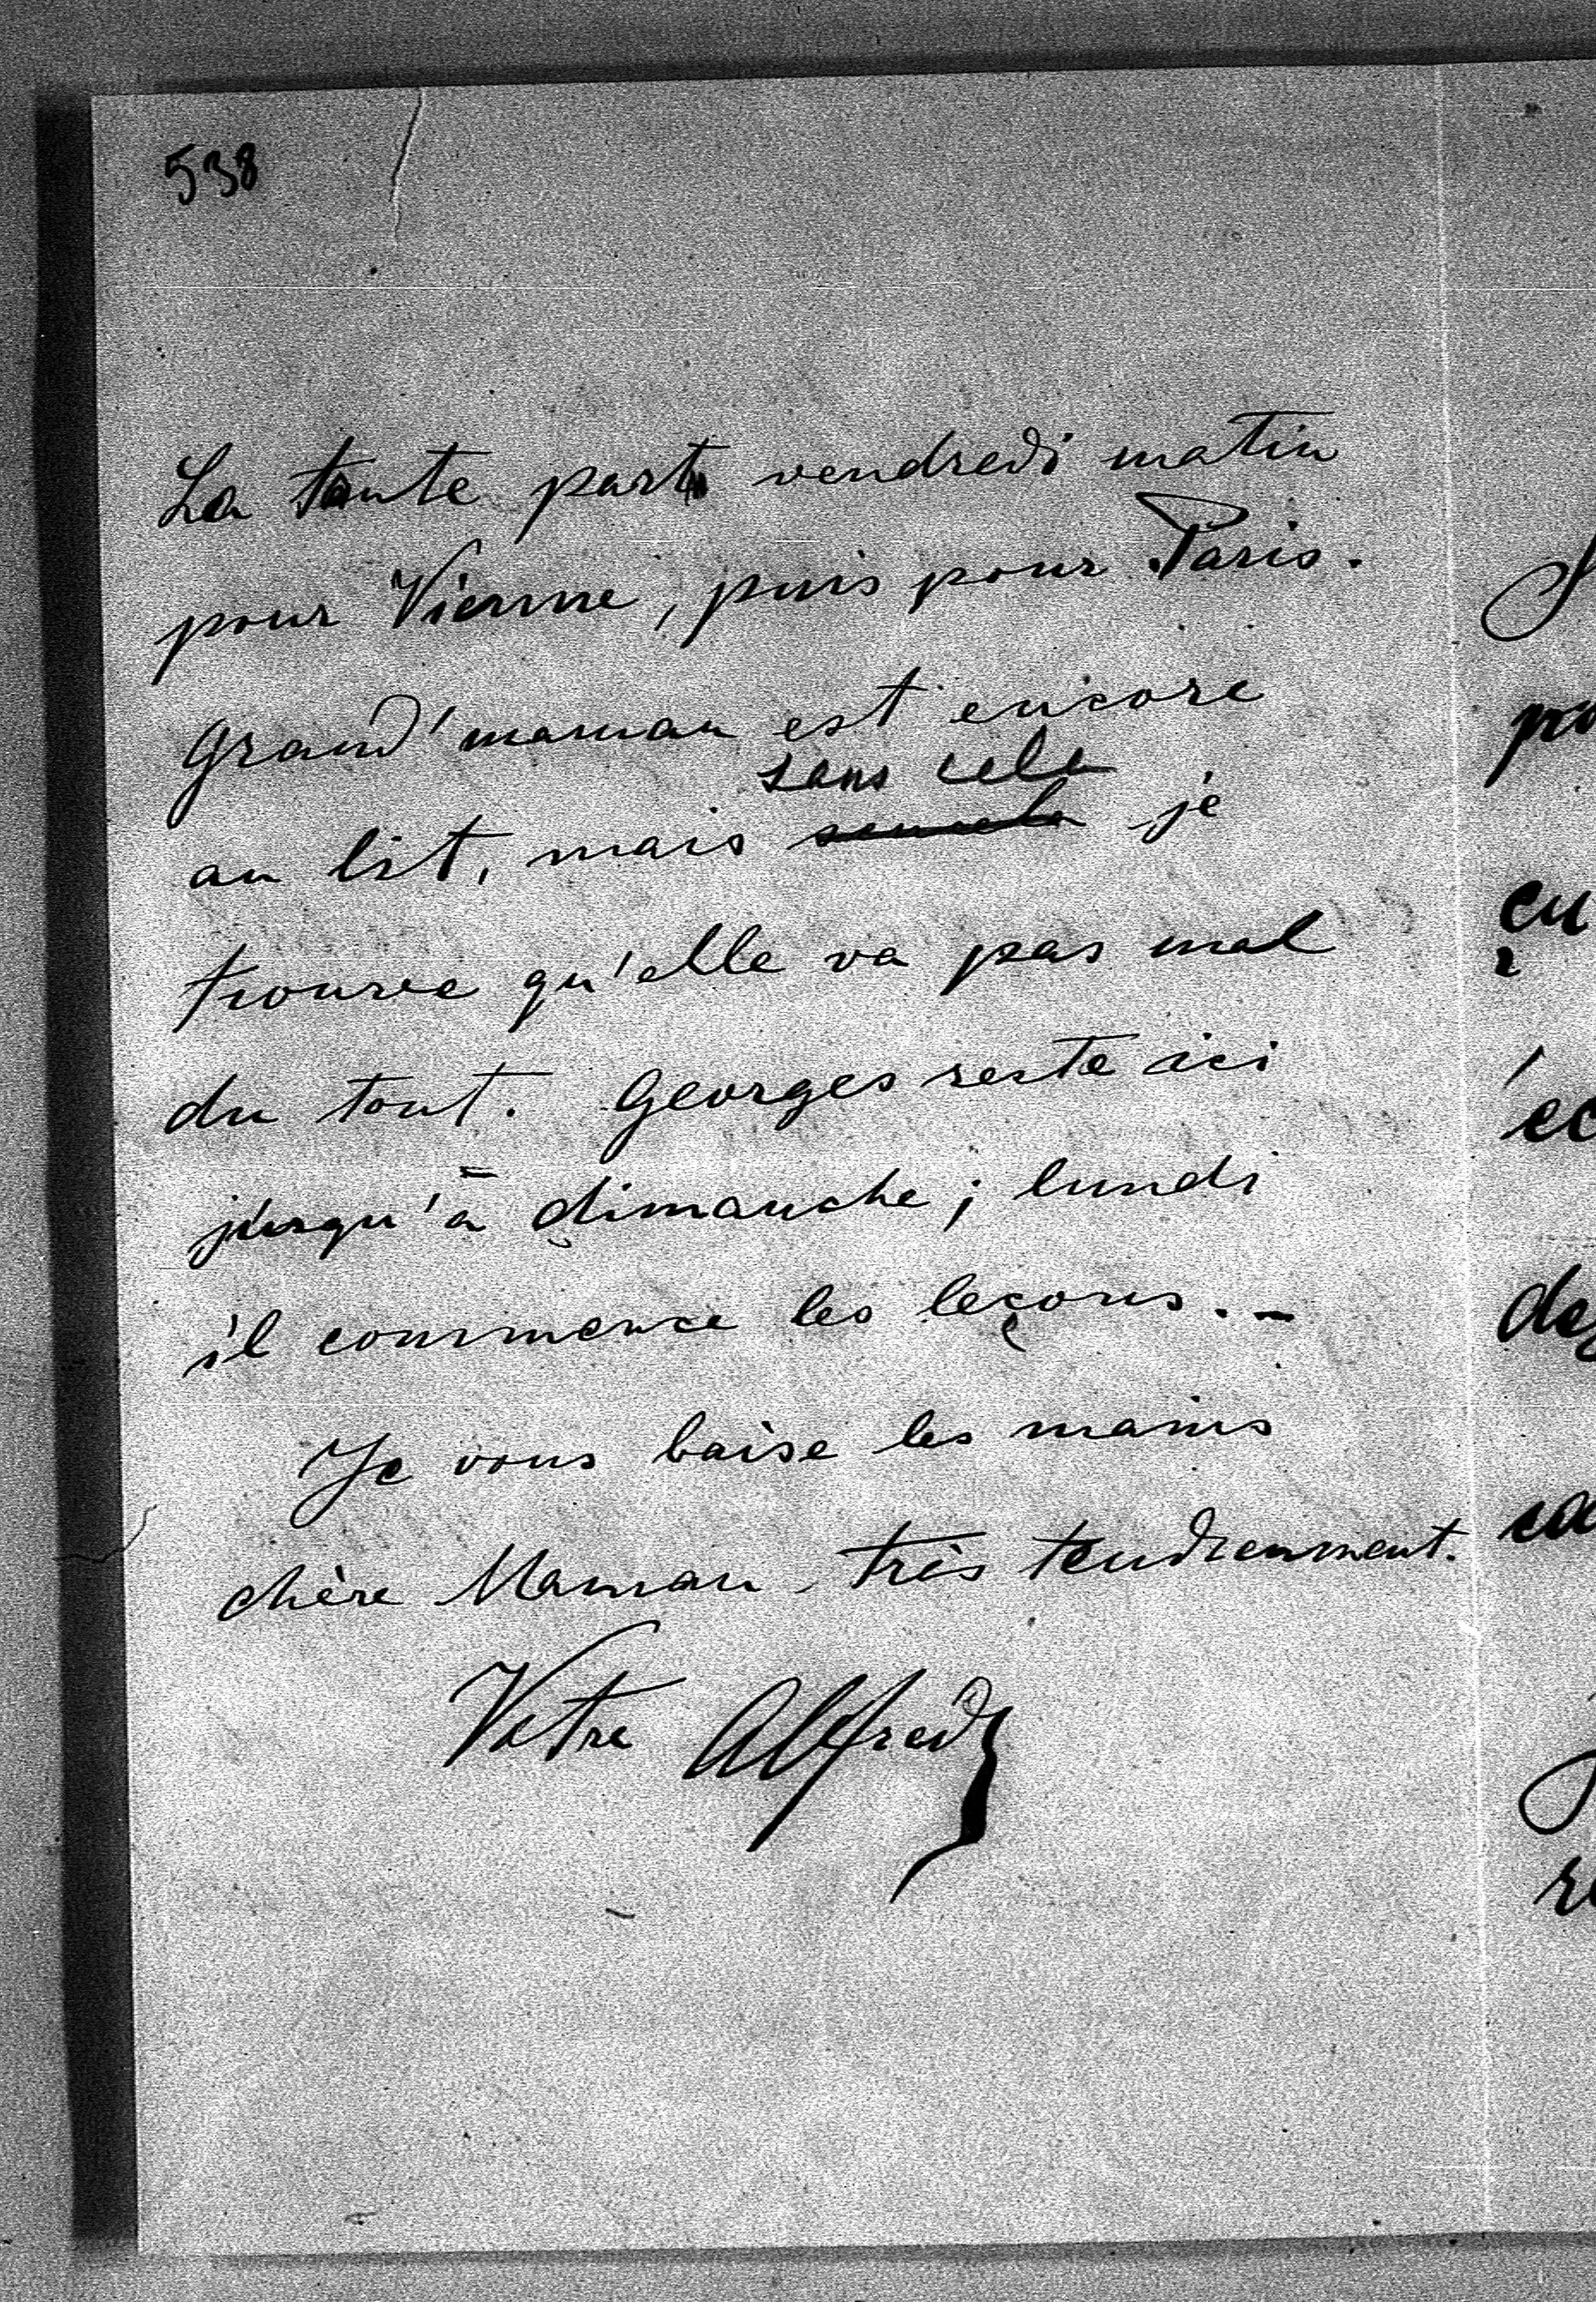 538
La tante part vendredi matin
pour Vienne, puis pour Paris.
Grand'maman est encore
sans cela
au lit, mais je
trouve qu'elle va pas mal
du tout. Georges reste ici
jusqu'à dimanche; lundi
il commence les leçons. -
Je vous baise les mains
chère Maman, très tendrement.
Votre Alfred